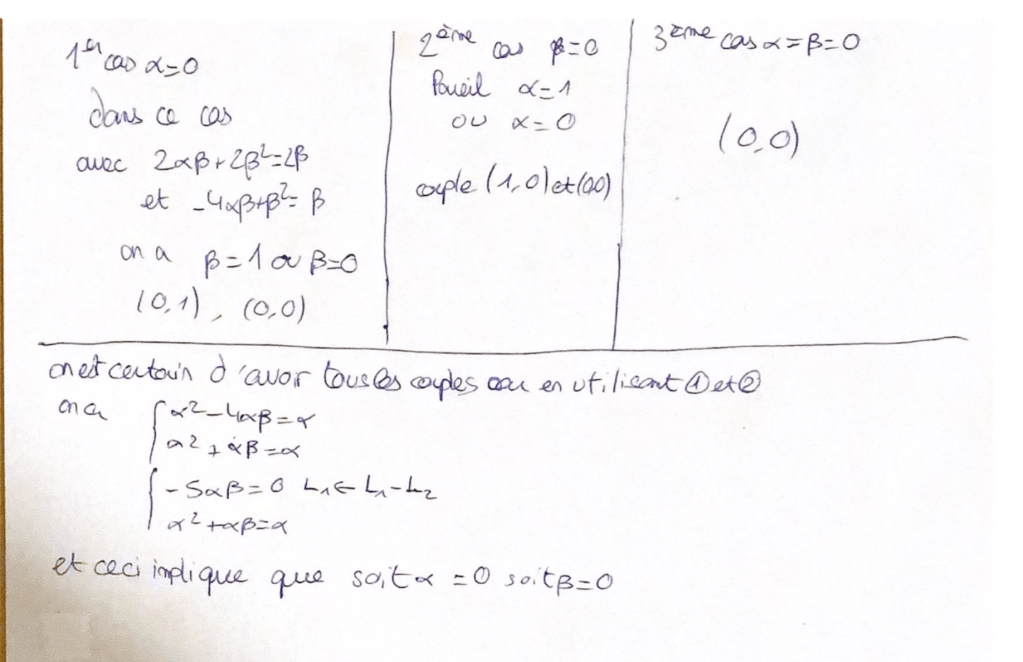 1er cas α=0
dans ce cas
avec 2αβ+2β²=2β
et -4αβ+β²=β
on a β=1 ou β=0
(0,1), (0,0)
2ème cas β=0
Pareil α=1
ou α=0
couple (1,0) et (0,0)
3ème cas α=β=0
(0,0)
on est certain d'avoir tous les couples car en utilisant ① et ②
on a { α²-4αβ=α
α²+αβ=α
{ -5αβ=0 L₁←L₁-L₂
α²+αβ=α
et ceci implique que soit α=0 soit β=0